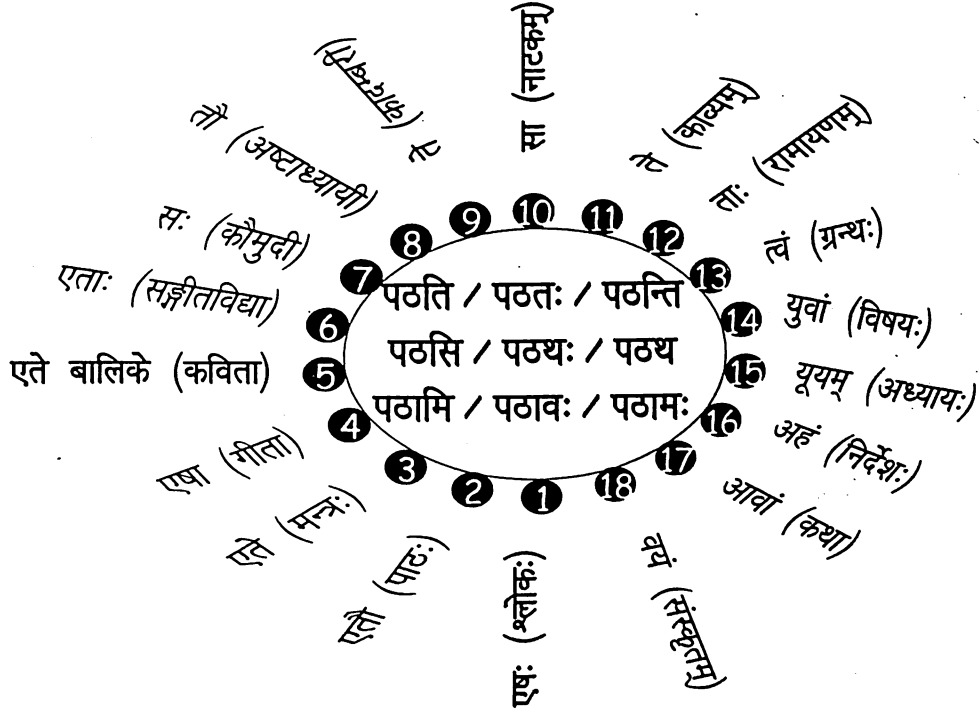 पठति / पठतः / पठन्ति
पठसि / पठथः / पठथ
पठामि / पठावः / पठामः
1
एषः (श्लोकः)
2
एतौ (पाठः)
3
एते (मन्त्रः)
4
एषा (गीता)
5
एते बालिके (कविता)
6
एताः (सङ्गीतविद्या)
7
सः (कौमुदी)
8
तौ (अष्टाध्यायी)
9
ते (कादम्बरी)
10
सा (नाटकम्)
11
ते (काव्यम्)
12
ताः (रामायणम्)
13
त्वं (ग्रन्थः)
14
युवां (विषयः)
15
यूयम् (अध्यायः)
16
अहं (निर्देशः)
17
आवां (कथा)
18
वयं (संस्कृतम्)